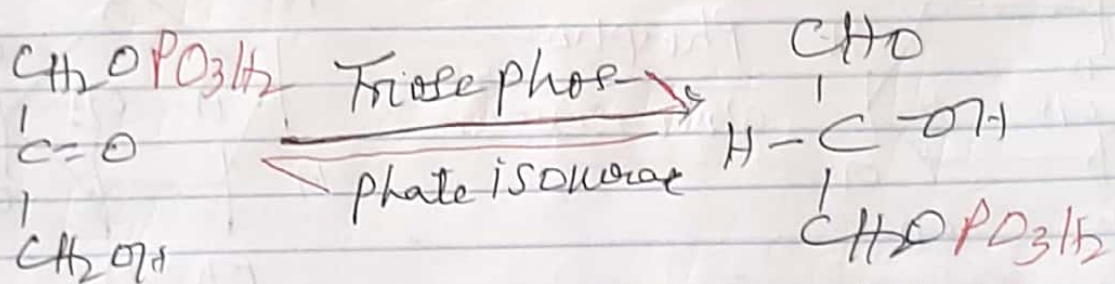 CH2OPO3H2
C=O
CH2OH
Triose phos-
phate isomerae
CHO
H-C-OH
CH2OPO3H2